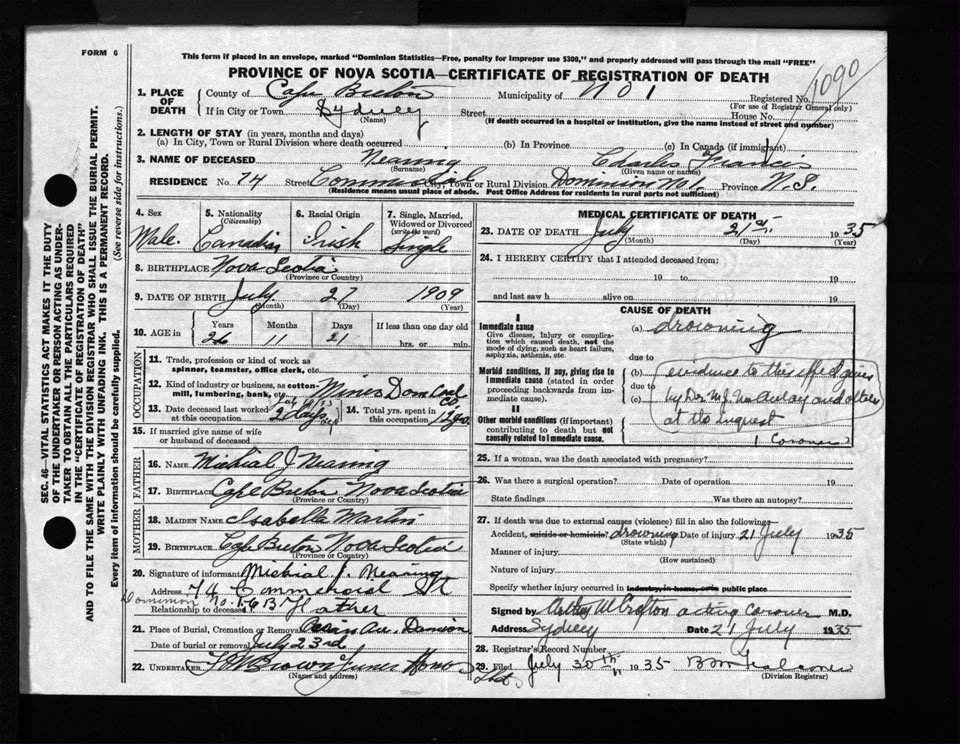 FORM 6
This form if placed in an envelope, marked "Dominion Statistics—Free, penalty for improper use $300," and properly addressed will pass through the mail "FREE"
PROVINCE OF NOVA SCOTIA—CERTIFICATE OF REGISTRATION OF DEATH
1090
SEC. 46—VITAL STATISTICS ACT MAKES IT THE DUTY
OF THE UNDERTAKER OR PERSON ACTING AS UNDER-
TAKER TO OBTAIN ALL THE PARTICULARS REQUIRED
IN THE "CERTIFICATE OF REGISTRATION OF DEATH"
AND TO FILE THE SAME WITH THE DIVISION REGISTRAR WHO SHALL ISSUE THE BURIAL PERMIT.
WRITE PLAINLY WITH UNFADING INK. THIS IS A PERMANENT RECORD.
Every item of information should be carefully supplied. (See reverse side for instructions.)
1. PLACE OF DEATH
County of Cape Breton Municipality of No 1 Registered No.
(For use of Registrar General only)
If in City or Town Sydney Street House No.
(Name) (If death occurred in a hospital or institution, give the name instead of street and number)
2. LENGTH OF STAY (in years, months and days)
(a) In City, Town or Rural Division where death occurred (b) In Province (c) In Canada (if immigrant)
3. NAME OF DECEASED Nearing Charles Francis
(Surname) (Given name or names)
RESIDENCE No. 74 Street Commercial City, Town or Rural Division Dominion No 1. Province N.S.
(Residence means usual place of abode. Post Office Address for residents in rural parts not sufficient)
4. Sex Male.
5. Nationality (Citizenship) Canadian
6. Racial Origin Irish
7. Single, Married, Widowed or Divorced (write the word) Single
8. BIRTHPLACE Nova Scotia
(Province or Country)
9. DATE OF BIRTH July 27 1909
(Month) (Day) (Year)
10. AGE in Years Months Days If less than one day old
26 11 21 hrs. or min.
OCCUPATION
11. Trade, profession or kind of work as spinner, teamster, office clerk, etc.
12. Kind of industry or business, as cotton-mill, lumbering, bank, etc. Miner Dom Coal Co
13. Date deceased last worked at this occupation 2 days ago
14. Total yrs. spent in this occupation 12 yrs.
15. If married give name of wife or husband of deceased
FATHER
16. NAME Michial J Nearing
17. BIRTHPLACE Cape Breton Nova Scotia
(Province or Country)
MOTHER
18. MAIDEN NAME Isabella Martin
19. BIRTHPLACE Cape Breton Nova Scotia
(Province or Country)
20. Signature of informant Michial J. Nearing
Address 74 Commercial St
Dominion No 1 C B
Relationship to deceased Father
21. Place of Burial, Cremation or Removal
Date of burial or removal July 23rd
22. UNDERTAKER Brown Funer Home
(Name and address)
MEDICAL CERTIFICATE OF DEATH
23. DATE OF DEATH July 21st 1935
(Month) (Day) (Year)
24. I HEREBY CERTIFY that I attended deceased from:
19 to 19
and last saw h alive on 19
CAUSE OF DEATH
I
Immediate cause
Give disease, injury or complication which caused death, not the mode of dying, such as heart failure, asphyxia, asthenia, etc.
(a) drowning
due to
Morbid conditions, if any, giving rise to immediate cause (stated in order proceeding backwards from immediate cause).
(b) evidence to this effect given
due to
(c) by Dr. M.J. and others
at the inquest
II
Other morbid conditions (if important) contributing to death but not causally related to immediate cause.
Coroner
25. If a woman, was the death associated with pregnancy?
26. Was there a surgical operation? Date of operation 19
State findings Was there an autopsy?
27. If death was due to external causes (violence) fill in also the following:
Accident, suicide or homicide? drowning Date of injury 21 July 1935
(State which)
Manner of injury
(How sustained)
Nature of injury
Specify whether injury occurred in industry, in home, or in public place
Signed by Crofton acting coroner M.D.
Address Sydney Date 21 July 1935
28. Registrar's Record Number
29. Filed July 30th 1935
(Division Registrar)